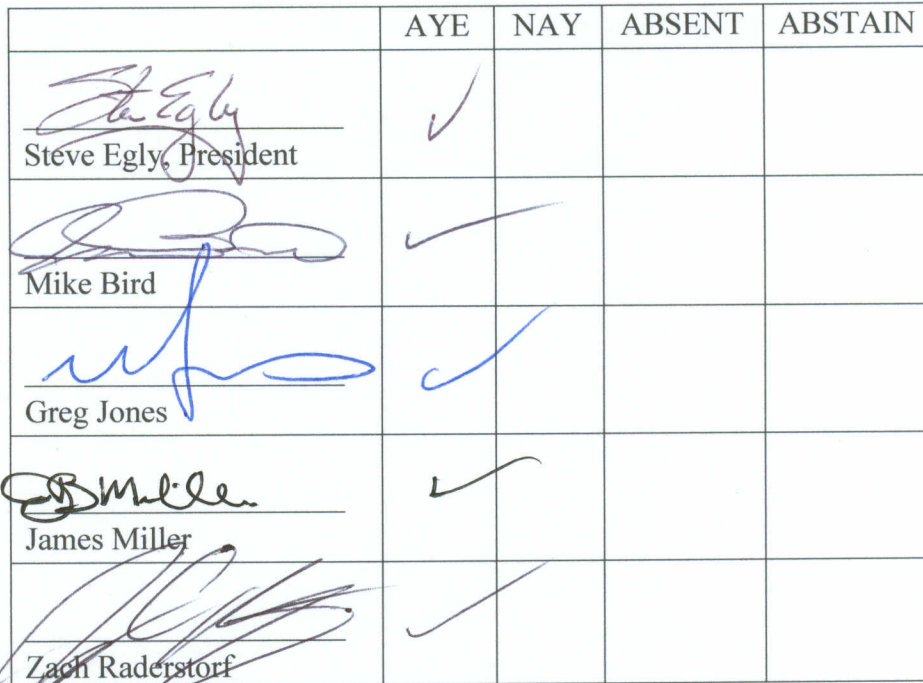 AYE NAY ABSENT ABSTAIN
Steve Egly
Steve Egly, President
Mike Bird
Greg Jones
JB Miller
James Miller
Zach Raderstorf